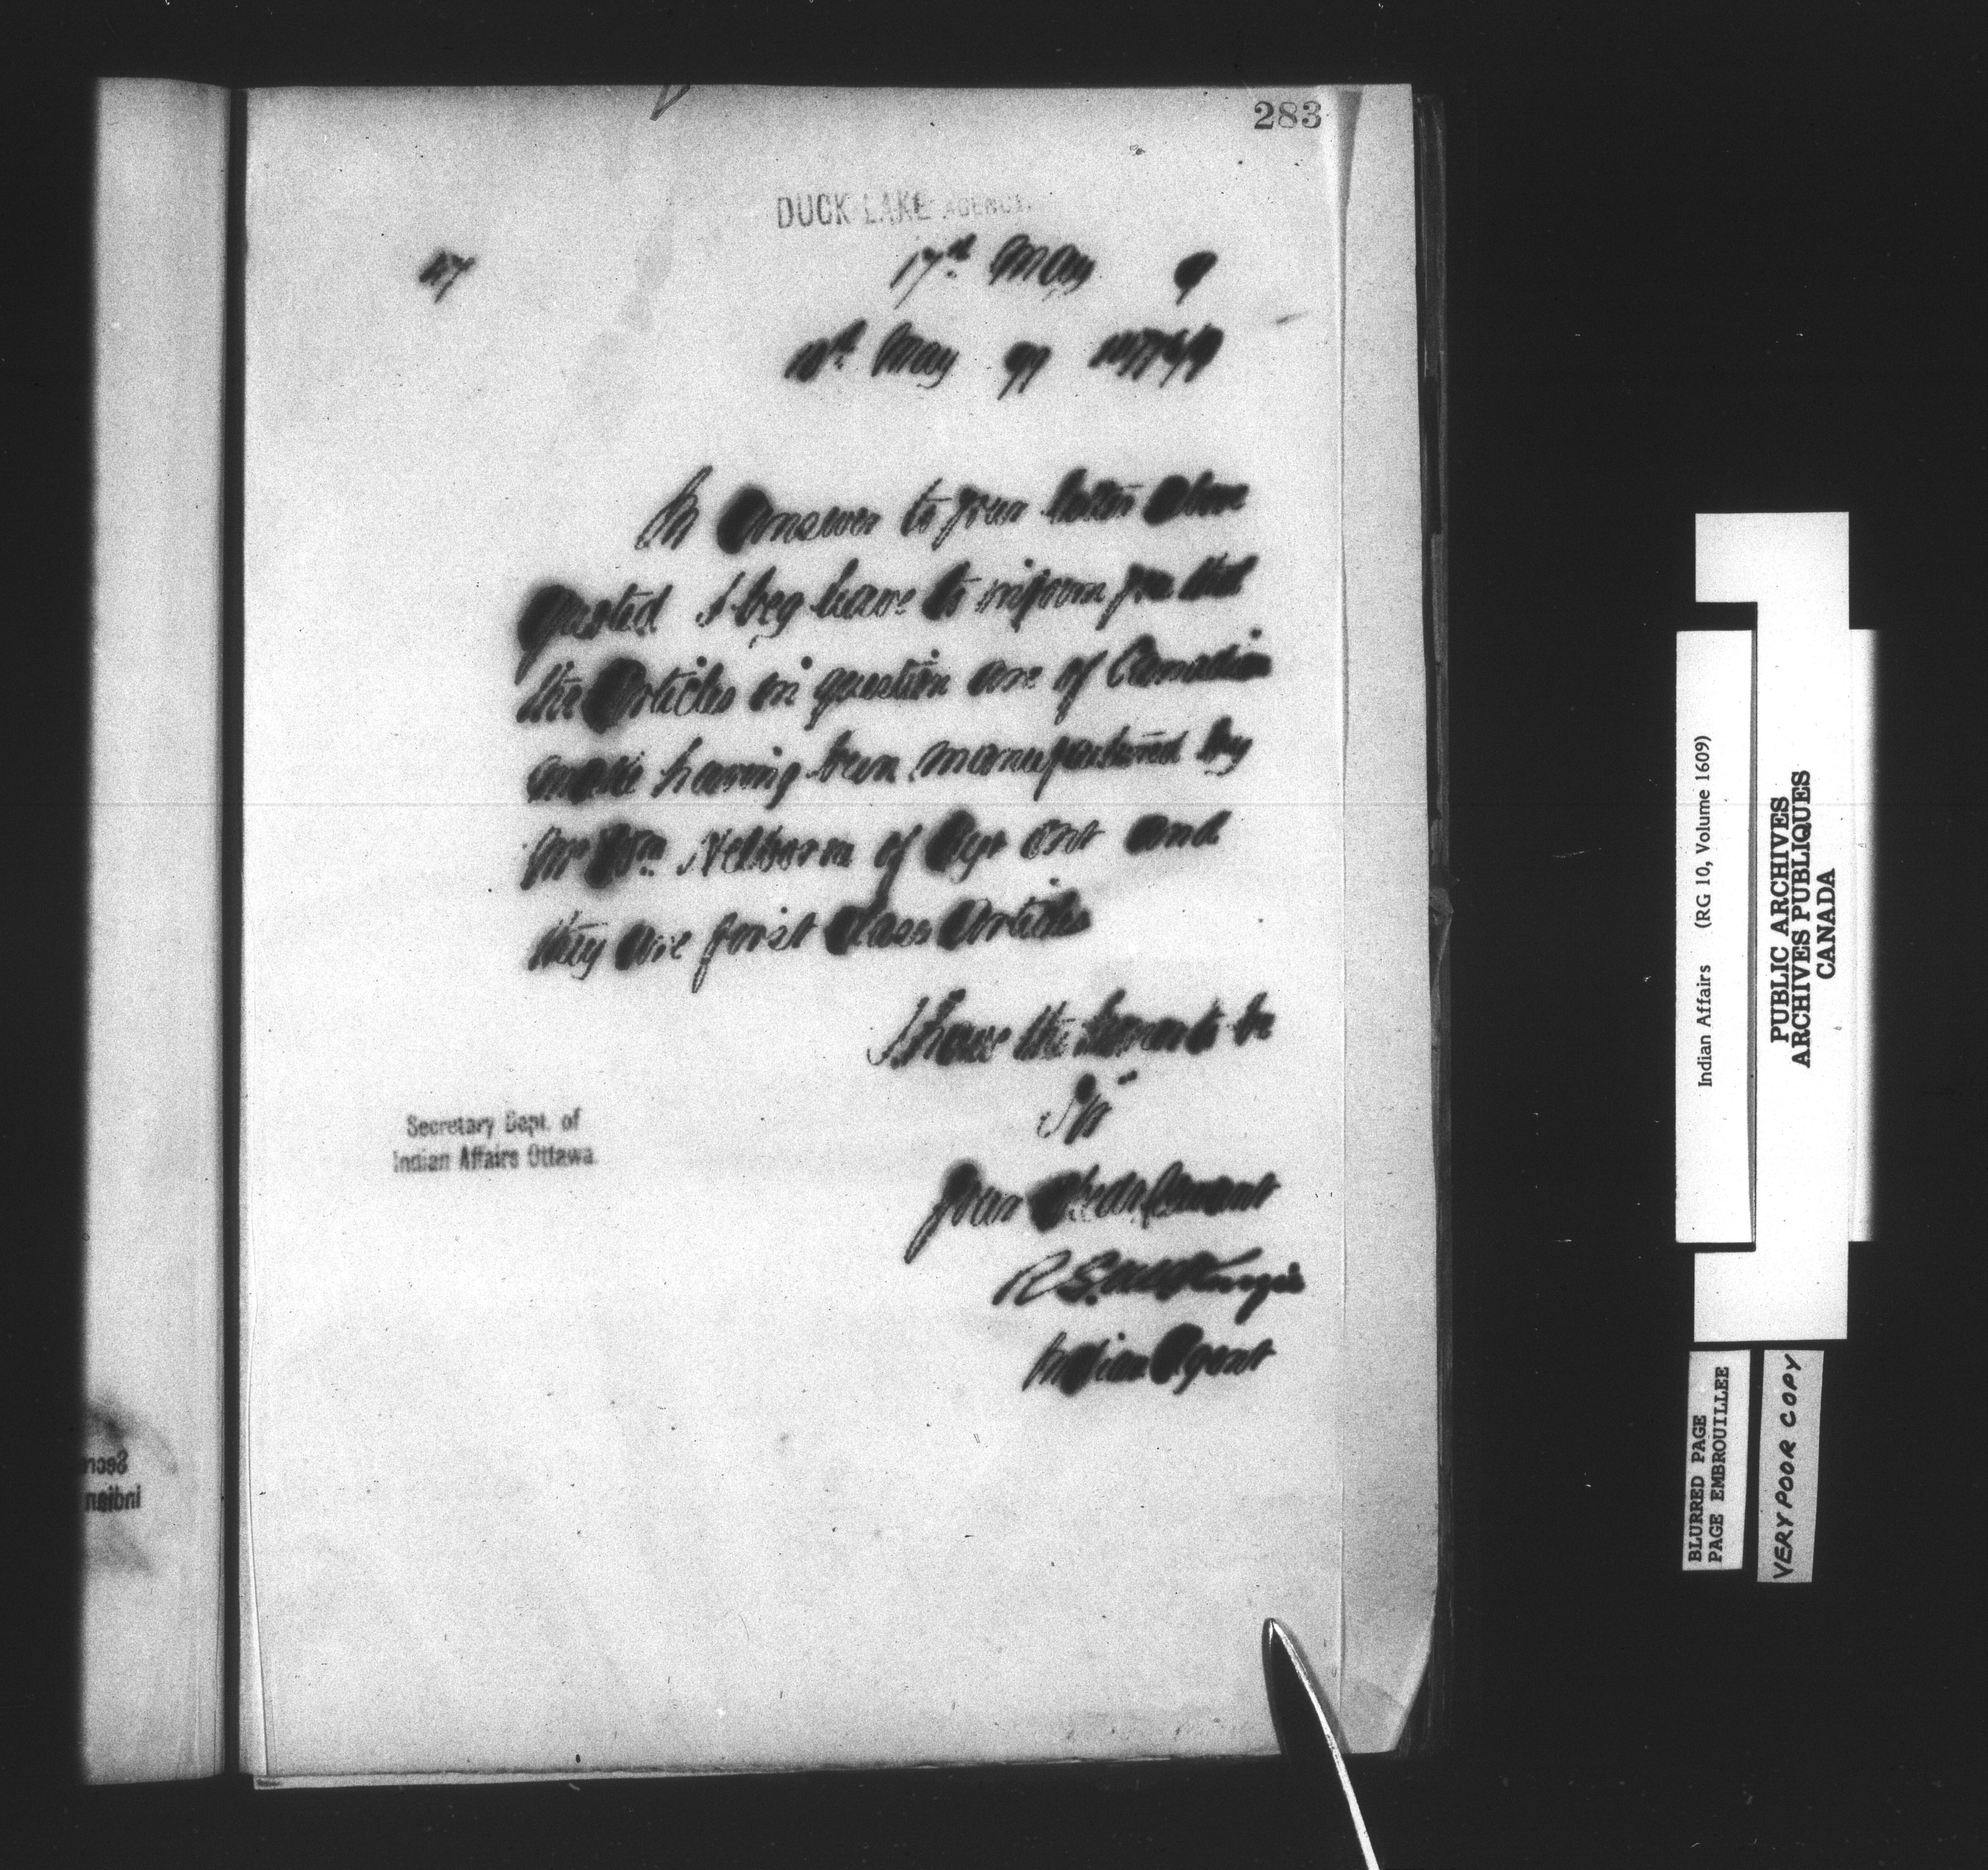 283
DUCK LAKE AGENCY.
47
17th May 9
May 99
In answer to your letter above
quoted I beg leave to inform you that
the articles in question are of Canadian
make having been manufactured by
Mr Wm of Ayr Ont and
they are first class articles
I have the honor to be
Sir
Your Obedt Servant
Secretary Dept. of
Indian Affairs Ottawa
R S McKenzie
Indian Agent
Indian Affairs (RG 10, Volume 1609)
PUBLIC ARCHIVES
ARCHIVES PUBLIQUES
CANADA
BLURRED PAGE
PAGE EMBROUILLEE
VERY POOR COPY